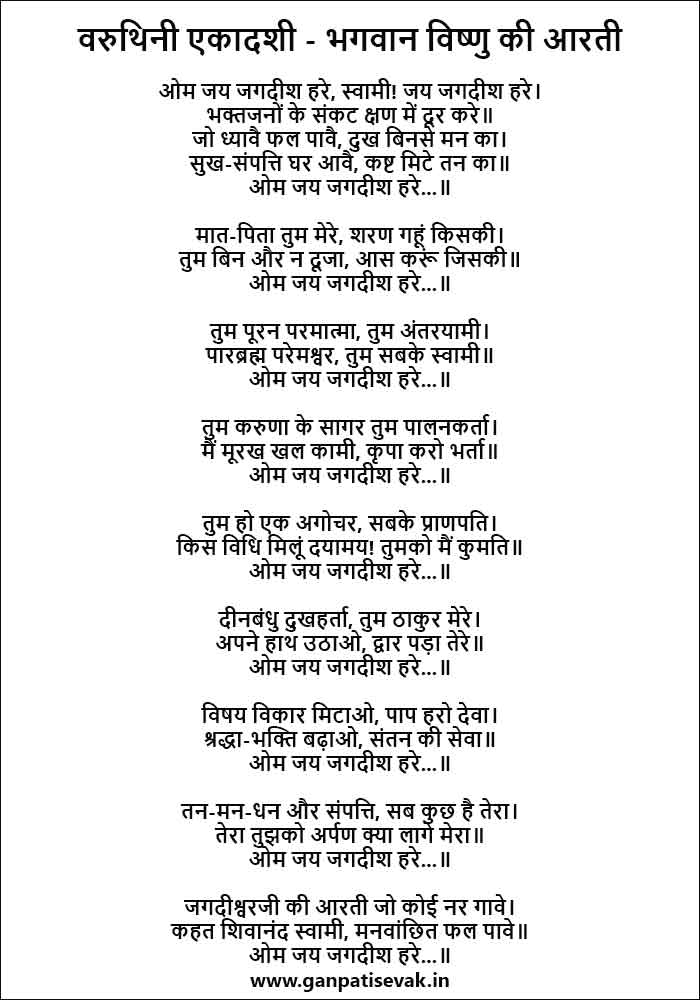 वरुथिनी एकादशी - भगवान विष्णु की आरती
ओम जय जगदीश हरे, स्वामी! जय जगदीश हरे।
भक्तजनों के संकट क्षण में दूर करे॥
जो ध्यावै फल पावै, दुख बिनसे मन का।
सुख-संपत्ति घर आवै, कष्ट मिटे तन का॥
ओम जय जगदीश हरे...॥
मात-पिता तुम मेरे, शरण गहूं किसकी।
तुम बिन और न दूजा, आस करूं जिसकी॥
ओम जय जगदीश हरे...॥
तुम पूरन परमात्मा, तुम अंतरयामी।
पारब्रह्म परेमश्वर, तुम सबके स्वामी॥
ओम जय जगदीश हरे...॥
तुम करुणा के सागर तुम पालनकर्ता।
मैं मूरख खल कामी, कृपा करो भर्ता॥
ओम जय जगदीश हरे...॥
तुम हो एक अगोचर, सबके प्राणपति।
किस विधि मिलूं दयामय! तुमको मैं कुमति॥
ओम जय जगदीश हरे...॥
दीनबंधु दुखहर्ता, तुम ठाकुर मेरे।
अपने हाथ उठाओ, द्वार पड़ा तेरे॥
ओम जय जगदीश हरे...॥
विषय विकार मिटाओ, पाप हरो देवा।
श्रद्धा-भक्ति बढ़ाओ, संतन की सेवा॥
ओम जय जगदीश हरे...॥
तन-मन-धन और संपत्ति, सब कुछ है तेरा।
तेरा तुझको अर्पण क्या लागे मेरा॥
ओम जय जगदीश हरे...॥
जगदीश्वरजी की आरती जो कोई नर गावे।
कहत शिवानंद स्वामी, मनवांछित फल पावे॥
ओम जय जगदीश हरे...॥
www.ganpatisevak.in